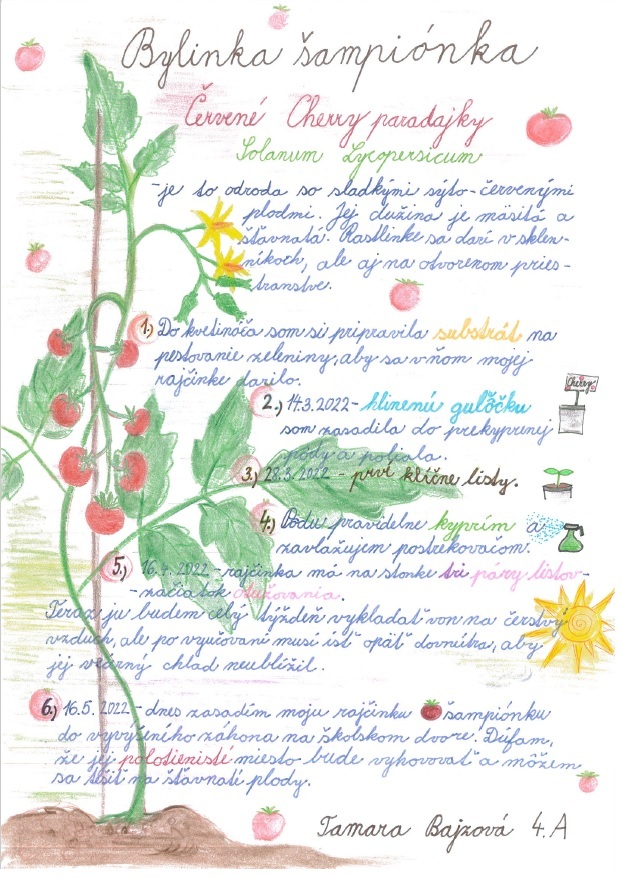 Bylinka šampiónka
Červené Cherry paradajky
Solanum Lycopersicum
-je to odroda so sladkými sýto-červenými
plodmi. Jej dužina je mäsitá a
šťavnatá. Rastlinke sa darí v sklen-
níkoch, ale aj na otvorenom pries-
transtve.
1.) Do kvetináča som si pripravila substrát na
pestovanie zeleniny, aby sa v ňom mojej
rajčinke darilo.
Cherry
2.) 14.3.2022 - hlinenú guľôčku
som zasadila do prekyprenej
pôdy a poliala.
3.) 28.3.2022 - prvé klíčne listy.
4.) Pôdu pravidelne kyprím a
zavlažujem postrekovačom.
5.) 16.4.2022 - rajčinka má na stonke tri páry listov-
-začiatok otužovania.
Teraz ju budem celý týždeň vykladať von na čerstvý
vzduch, ale po vyučovaní musí ísť opäť dovnútra, aby
jej večerný chlad neublížil.
6.) 16.5.2022 - dnes zasadím moju rajčinku šampiónku
do vyvýšeného záhona na školskom dvore. Dúfam,
že jej polotienisté miesto bude vyhovovať a môžem
sa tešiť na šťavnaté plody.
Tamara Bajzová 4.A